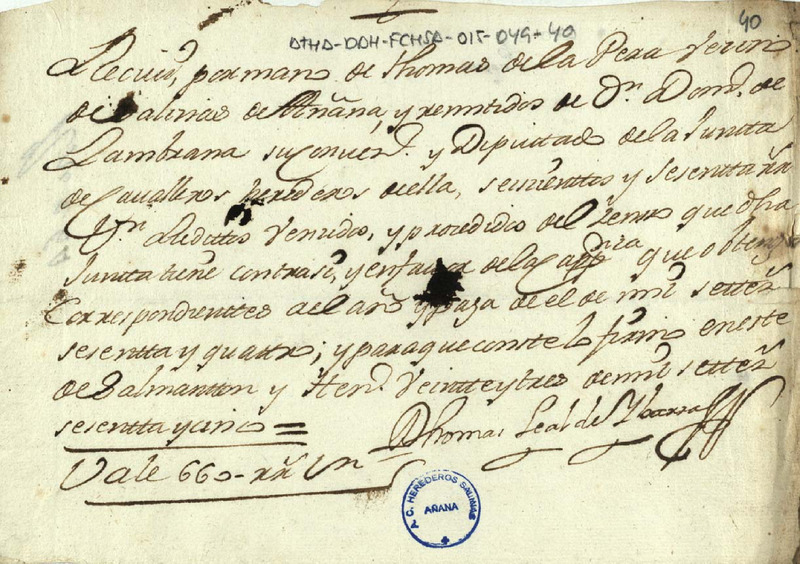 40
ATHA-DAH-FCHSA-015-049-40
Recivi, por mano de Thomas de la Pera Vecino
de Salinas de Añana, y remitidos de Dn. Domo. de
Zambrana su Conven. y Diputado de la Juntta
de Cavalleros herederos de ella, seicienttos y sesentta Rs
Vn Reditos Vencidos, y procedidos del Zenso que dha
Juntta tiene contra si, y en favor de la Cappnia que obtengo
Correspondientes del año y paga de el de mil settezs
sesentta y quatro; y para que conste lo firmo en este
de Salmanton y Hen. Veintte y tres de mil settezs
sesentta y cinco =
Dn Thomas Leal de Ybarra
Vale 660-rrs Vn
C. HEREDEROS SALINAS
AÑANA